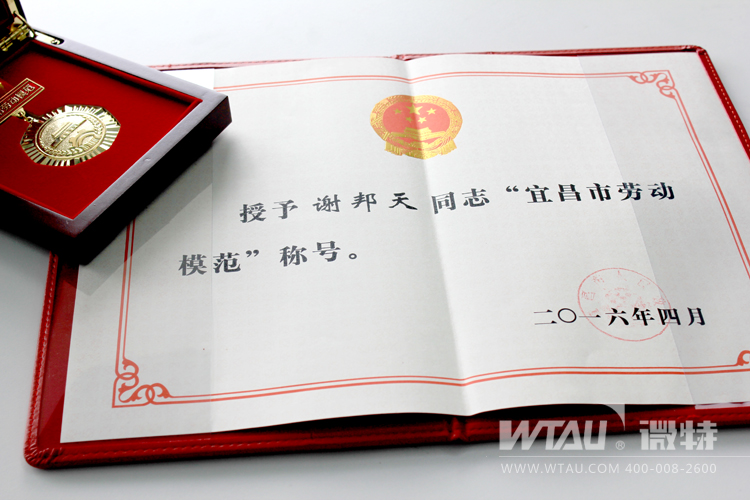 劳动模范
授予 谢邦天 同志“宜昌市劳动
模范”称号。
二〇一六年四月
WTAU® 微特
WWW.WTAU.COM 400-008-2600